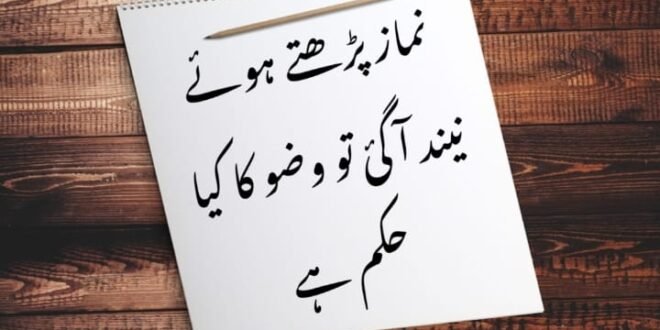 نماز پڑھتے ہوئے
نیند آگئ تو وضو کا کیا
حکم ہے